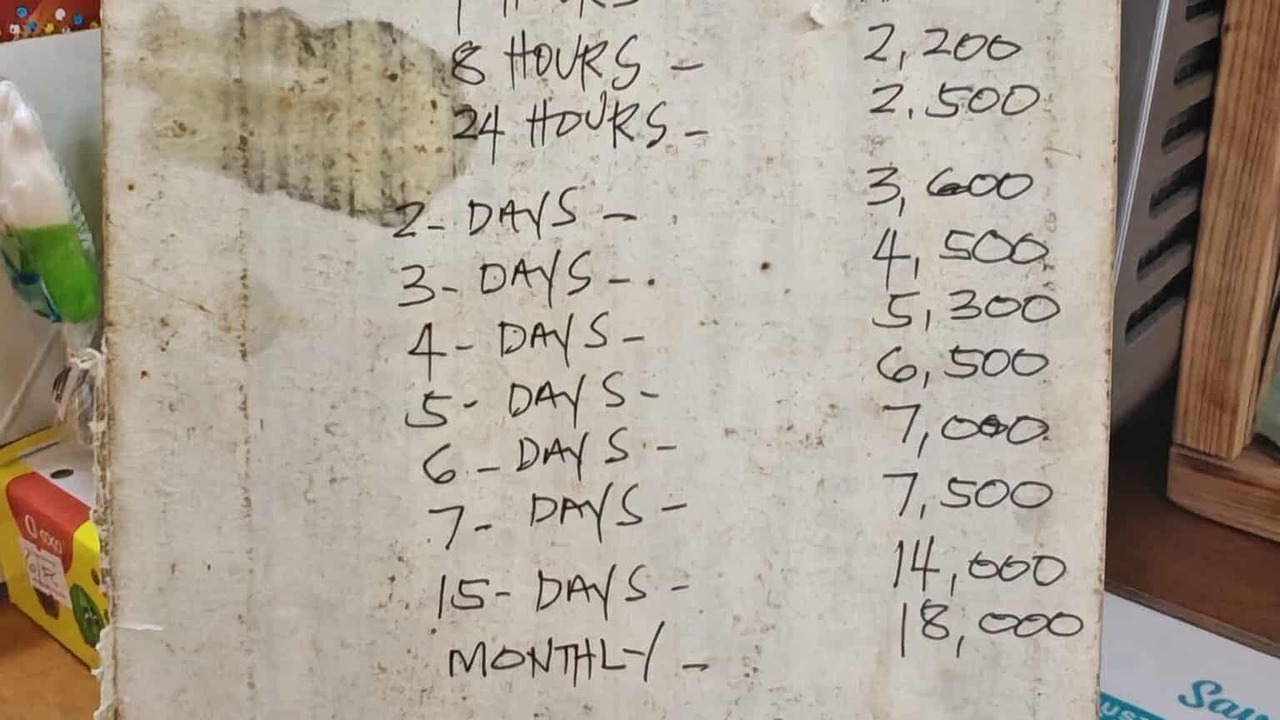 8 HOURS - 2,200
24 HOURS - 2.500
2- DAYS - 3,600
3- DAYS - 4,500
4- DAYS - 5,300
5- DAYS - 6,500
6 - DAYS - 7,000
7- DAYS - 7,500
15- DAYS - 14,000
MONTHLY - 18,000